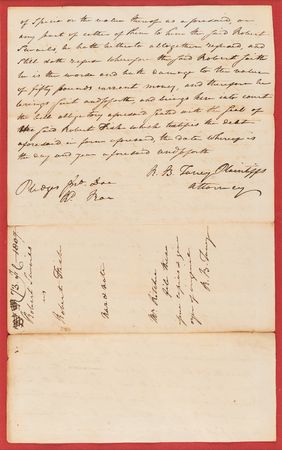 of Specie or the value thereof as aforesaid, or
any part of either of them to him the said Robert
Samuels he hath hitherto altogether refused and
still doth refuse wherefore the said Robert saith
he is the worse and hath damage to the value
of fifty pounds current money, and therefore he
brings suit and so forth, and brings here into court
the bill obligatory aforesaid sealed with the seal of
the said Robert Fish which testifies the debt
aforesaid in form aforesaid the date whereof is
the day and year aforesaid and so forth
R B Taney Plaintiffs
Attorney
Pledges Jno Doe
Rd Roe
Robert Samuels
vs
Robert Fish
Mr Ritchie
R B Taney